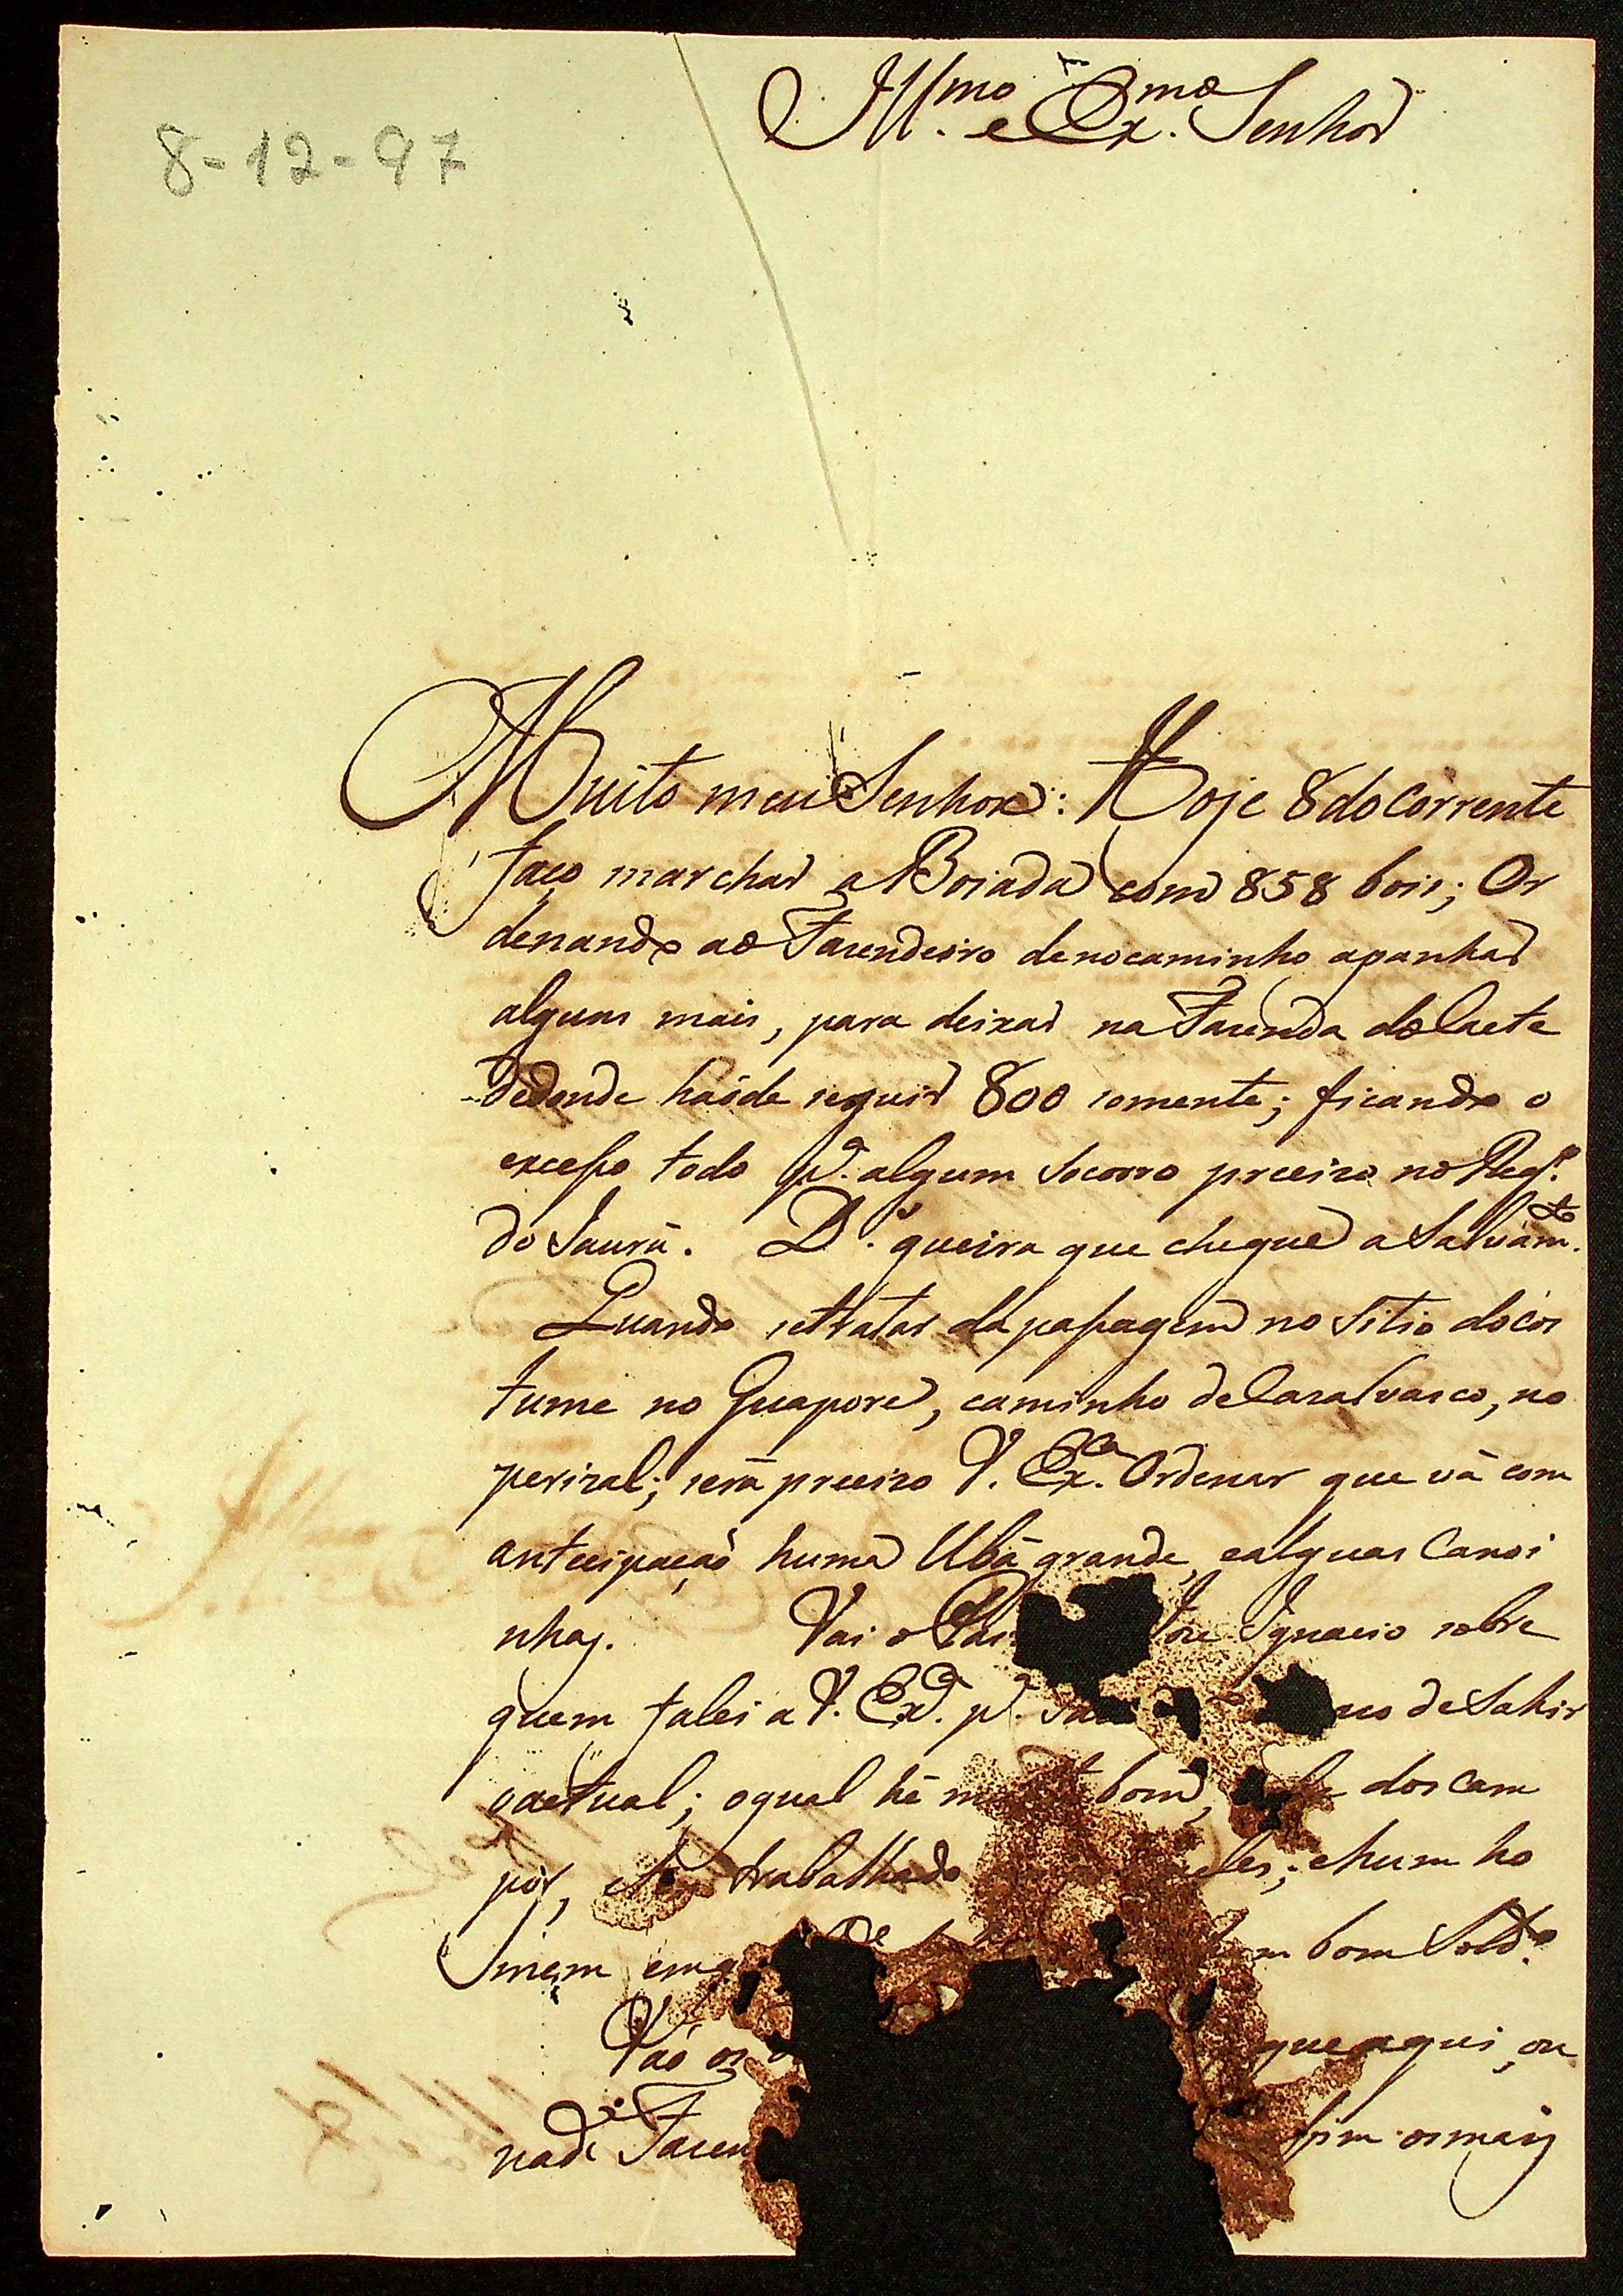 8-12-97
Ill.mo e Ex.mo Senhor
Muito meu Senhor: Hoje 8 do corrente
faço marchar a Boiada com 858 bois; Or
denando ao Fazendeiro de no caminho apanhar
alguns mais, para deixar na Fazenda do Caete
dedonde haóde seguir 800 somente; ficando o
excesso todo p.a algum socorro precizo no Reg.o
do Jaurú. D.s queira que chegue a Salvam.to
Quando se tratar da passagem no Sitio do cos
tume no Guapore, caminho de Casalvasco, no
perizal; será precizo V. Ex.ca Ordenar que vá com
antecipação huma Ubá grande, e alguas Canoi
nhas. Vai o Joze Ignacio sobre
quem falei a V. Ex.a p.a de Sahir
o actual; o qual hé bom, dos cam
pos, trabalhado ; e hum ho
mem bom Sold.o
Vaó os que aqui, ou
na d.a Fazen os mais